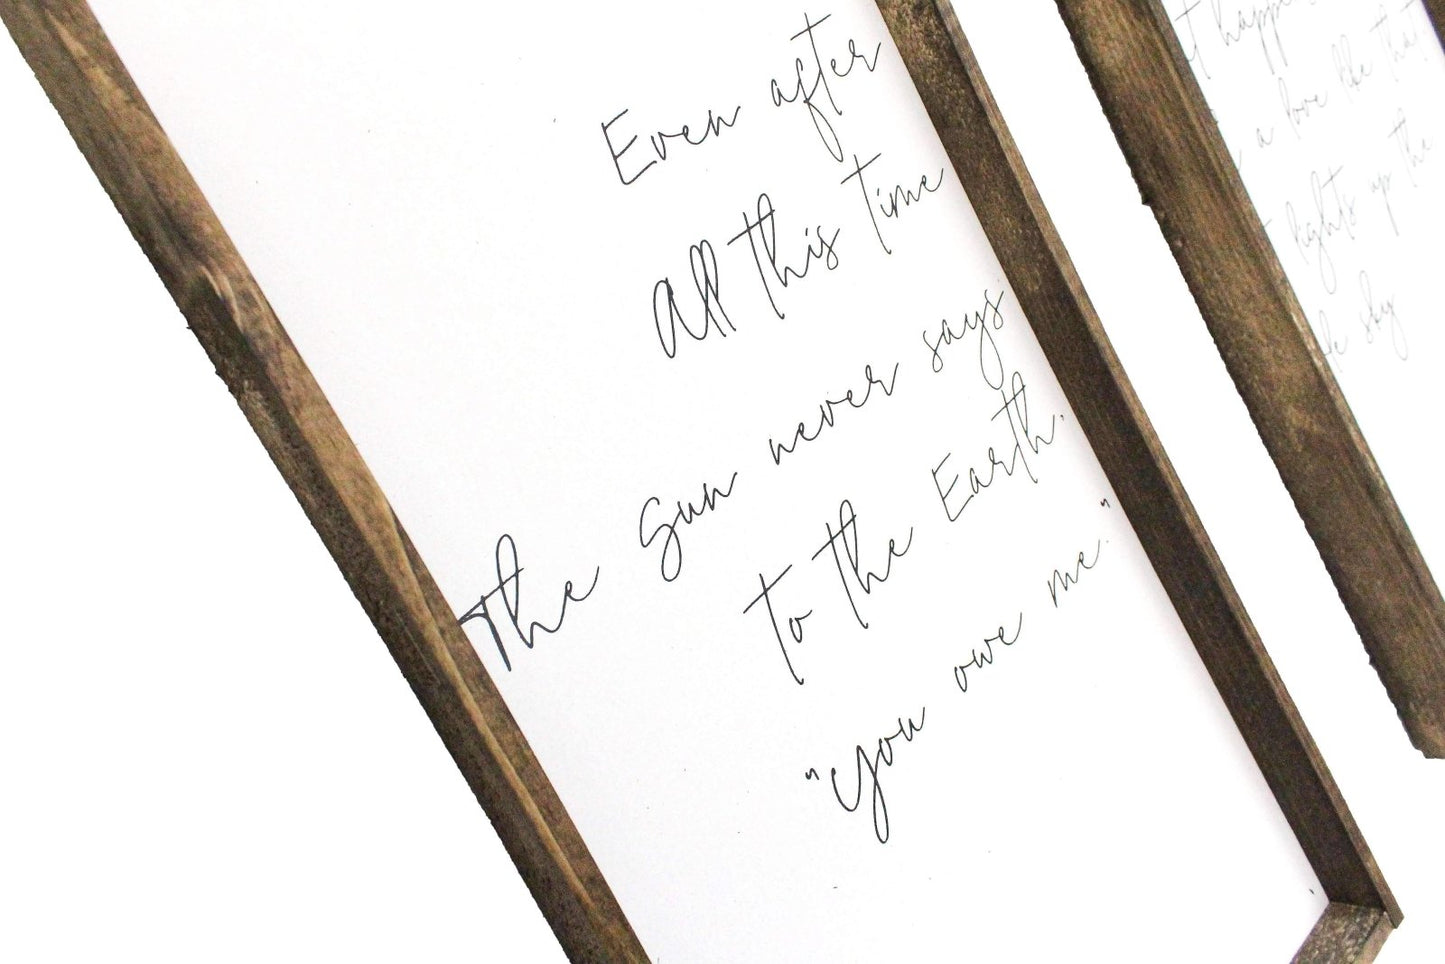 Even after
All this time
The Sun never says
to the Earth,
"You owe me."
happens
a love like that
lights up the
sky